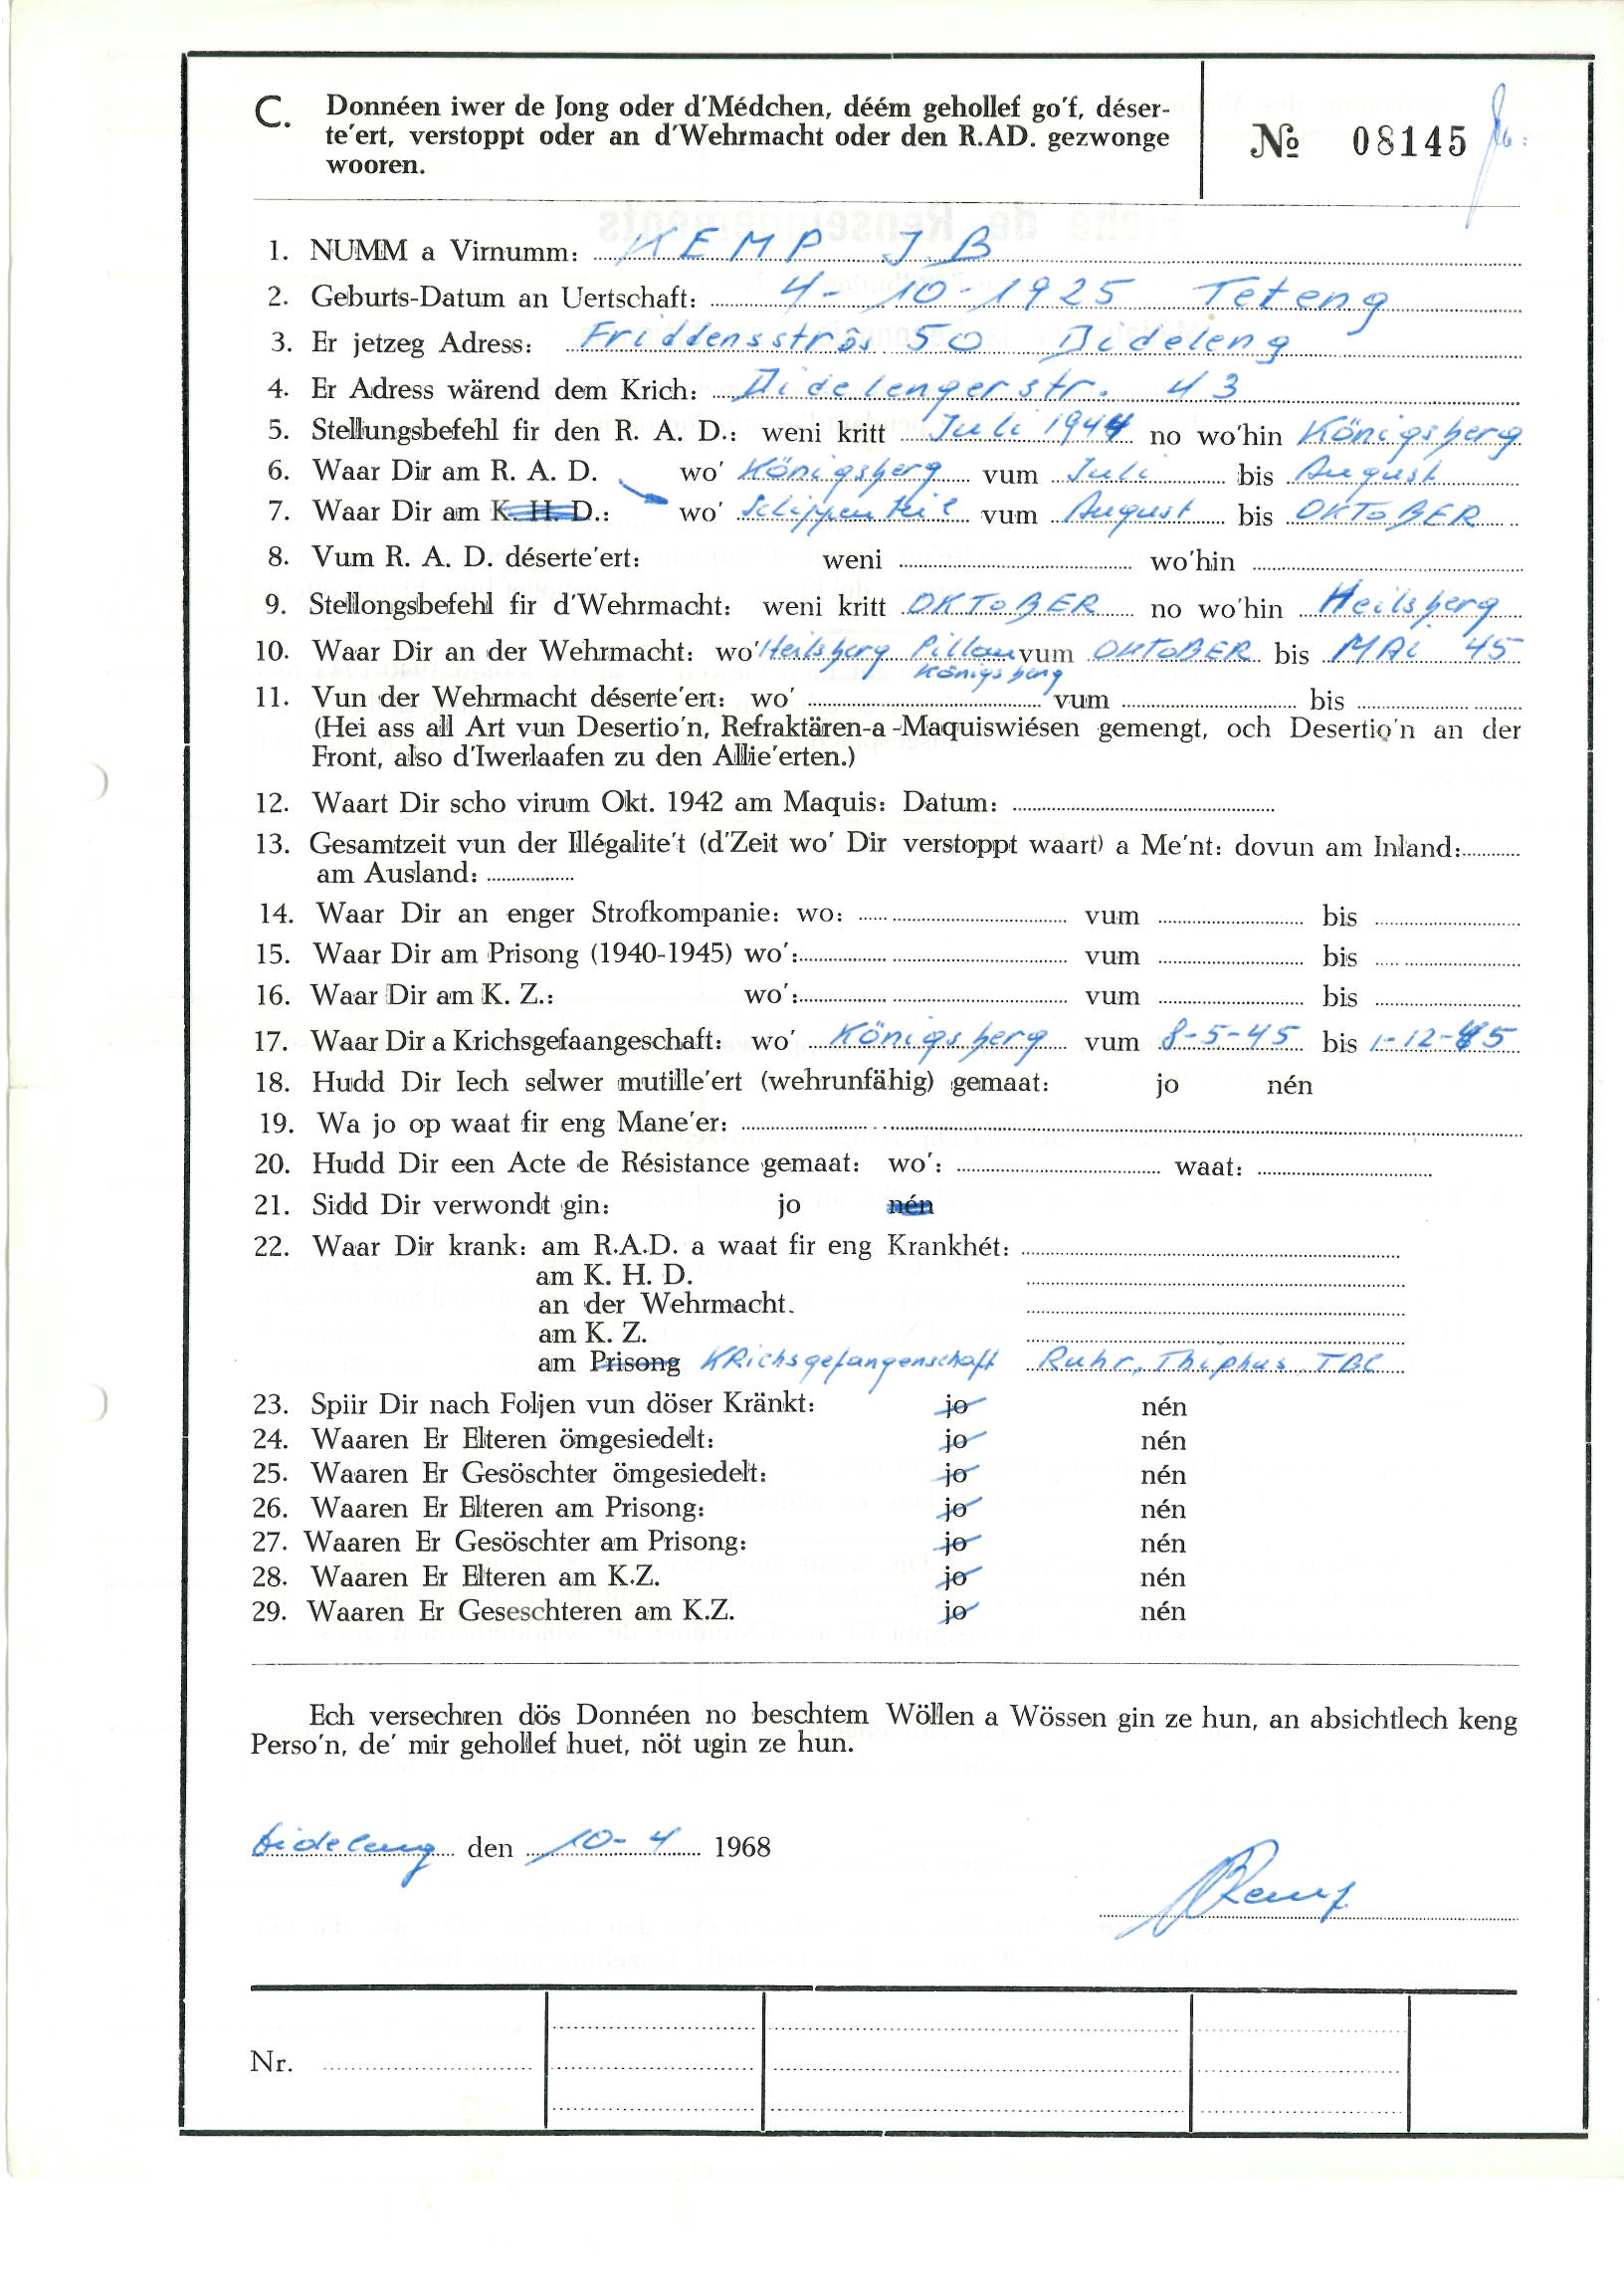 C. Donnéen iwer de Jong oder d'Médchen, déém gehollef go'f, déser-
te'ert, verstoppt oder an d'Wehrmacht oder den R.AD. gezwonge
wooren.
№ 08145
1. NUMM a Virnumm: KEMP J.B
2. Geburts-Datum an Uertschaft: 4-10-1925 Teteng
3. Er jetzeg Adress: Friddensstrôs 50 Dideleng
4. Er Adress wärend dem Krich: Didelengerstr. 43
5. Stellungsbefehl fir den R. A. D.: weni kritt Juli 1944 no wo'hin Königsberg
6. Waar Dir am R. A. D. wo' Königsberg vum Juli bis August
7. Waar Dir am K. H. D.: wo' vum August bis OKTOBER
8. Vum R. A. D. déserte'ert: weni wo'hin
9. Stellongsbefehl fir d'Wehrmacht: weni kritt OKTOBER no wo'hin Heilsberg
10. Waar Dir an der Wehrmacht: wo' Heilsberg Pillau vum OKTOBER bis MAi 45
Königsberg
11. Vun der Wehrmacht déserte'ert: wo' vum bis
(Hei ass all Art vun Desertio'n, Refraktären-a-Maquiswiésen gemengt, och Desertio'n an der
Front, also d'Iwerlaafen zu den Allie'erten.)
12. Waart Dir scho virum Okt. 1942 am Maquis: Datum:
13. Gesamtzeit vun der Illégalite't (d'Zeit wo' Dir verstoppt waart) a Me'nt: dovun am Inland:
am Ausland:
14. Waar Dir an enger Strofkompanie: wo: vum bis
15. Waar Dir am Prisong (1940-1945) wo': vum bis
16. Waar Dir am K. Z.: wo': vum bis
17. Waar Dir a Krichsgefaangeschaft: wo' Königsberg vum 8-5-45 bis 1-12-45
18. Hudd Dir Iech selwer mutille'ert (wehrunfähig) gemaat: jo nén
19. Wa jo op waat fir eng Mane'er:
20. Hudd Dir een Acte de Résistance gemaat: wo': waat:
21. Sidd Dir verwondt gin: jo nén
22. Waar Dir krank: am R.A.D. a waat fir eng Krankhét:
am K. H. D.
an der Wehrmacht.
am K. Z.
am Prisong KRichsgefangenschaft Ruhr, Thiphus, TBC
23. Spiir Dir nach Foljen vun döser Kränkt: jo nén
24. Waaren Er Elteren ömgesiedelt: jo nén
25. Waaren Er Gesöschter ömgesiedelt: jo nén
26. Waaren Er Elteren am Prisong: jo nén
27. Waaren Er Gesöschter am Prisong: jo nén
28. Waaren Er Elteren am K.Z. jo nén
29. Waaren Er Geseschteren am K.Z. jo nén
Ech versechren dös Donnéen no beschtem Wöllen a Wössen gin ze hun, an absichtlech keng
Perso'n, de' mir gehollef huet, nöt ugin ze hun.
Dideleng den 10-4 1968
JBKemp
Nr.